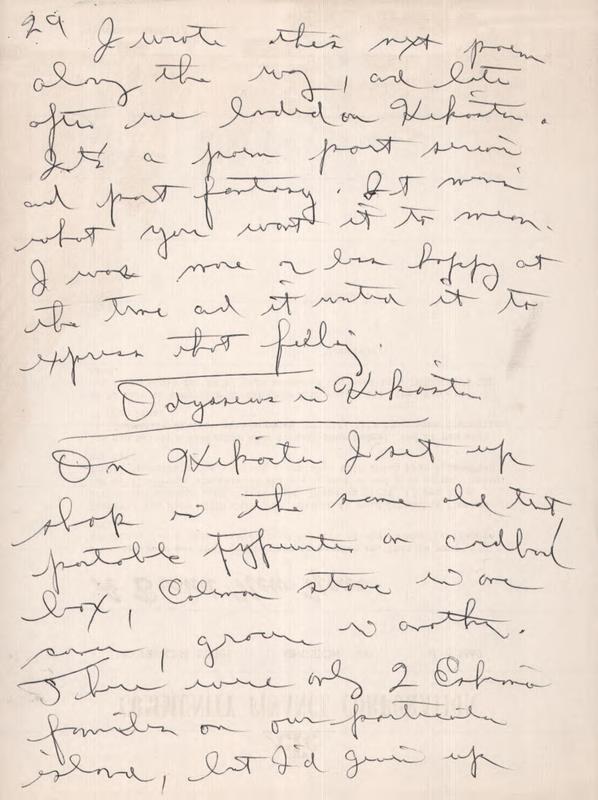 29
I wrote this next poem
along the way, and later
after we landed on Kikastan.
It's a poem part serious
and part fantasy. It means
what you want it to mean.
I was more or less happy at
the time and it wanted it to
express that feeling.
Odysseus in Kikastan
On Kikastan I set up
shop in the same old tent
portable typewriter on cardboard
box, Coleman stove in one
corner, groceries in another.
There were only 2 Eskimo
families on our particular
island, but I'd given up